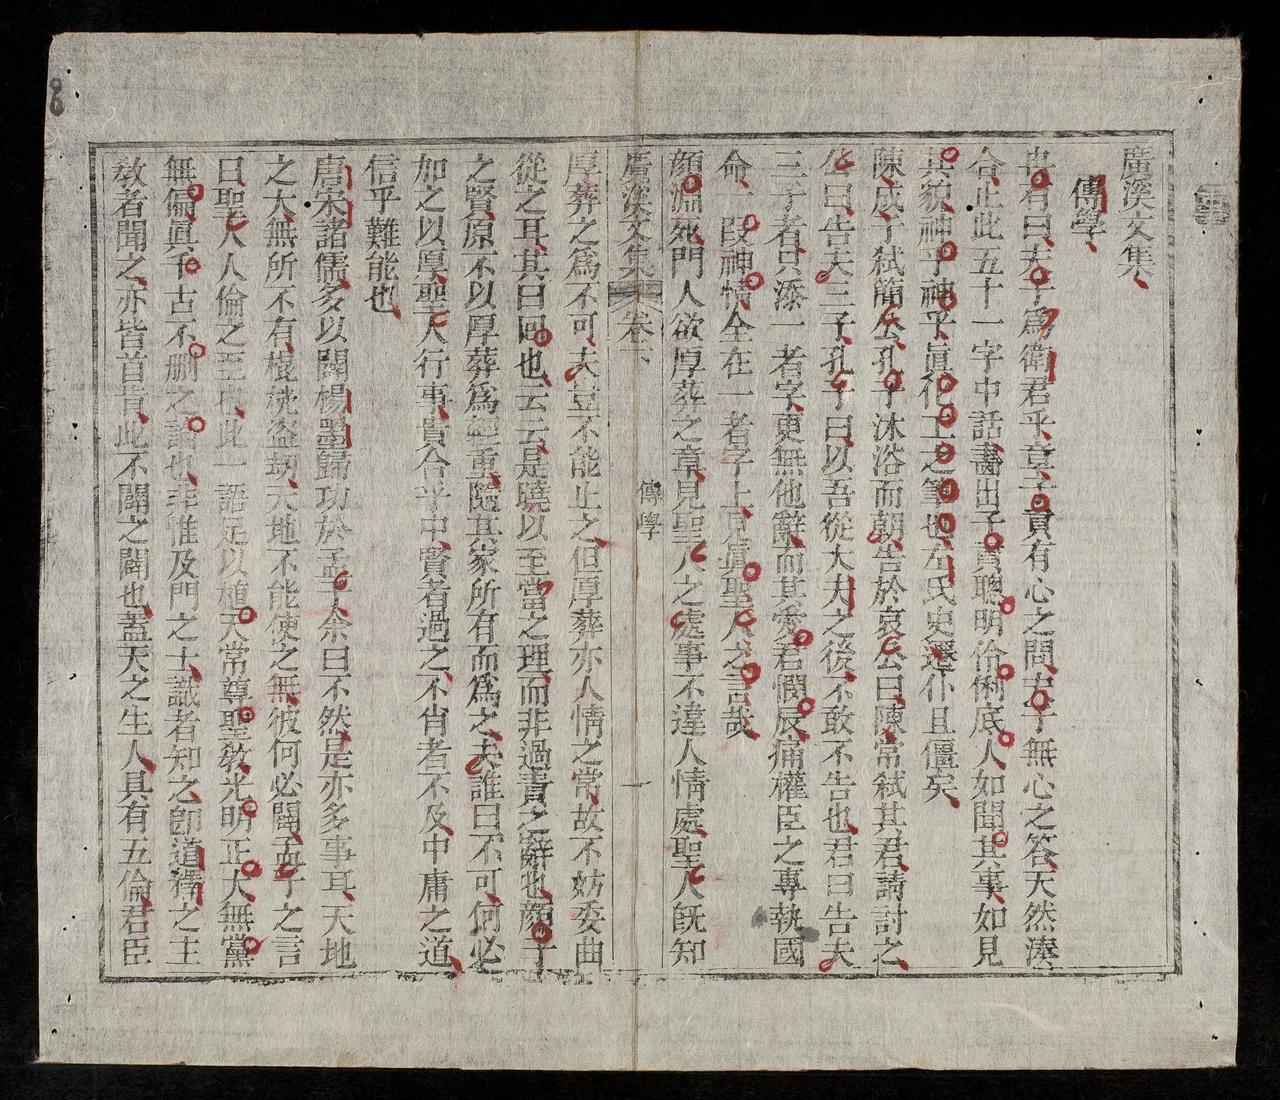 廣溪文集
傳學
冉有曰夫子爲衛君乎章子貢有心之問夫子無心之答天然湊
合止此五十一字中話畵出子貢聰明伶俐底人如聞其事如見
其貌神乎神乎眞化工之筆也左氏史遷仆且僵矣
陳成子弒簡公孔子沐浴而朝告於哀公曰陳常弒其君請討之
公曰告夫三子孔子曰以吾從大夫之後不敢不告也君曰告夫
三子者只添一者字更無他辭而其愛君憫辰痛權臣之專執國
命一段神情全在一者字上見眞聖人之言哉
顔淵死門人欲厚葬之章見聖人之處事不違人情處聖人旣知
廣溪文集 卷下 傳學 一
厚葬之爲不可夫豈不能止之但厚葬亦人情之常故不妨委曲
從之耳其曰回也云云是曉以至當之理而非過責之辭也顔子
之賢原不以厚葬爲輕重隨其家所有而爲之夫誰曰不可何必
加之以厚聖人行事貴合乎中賢者過之不肖者不及中庸之道
信乎難能也
唐宋諸儒多以闢楊墨歸功於孟子余曰不然是亦多事耳天地
之大無所不有棍桄盜刼天地不能使之無彼何必闢孟子之言
曰聖人人倫之至也此一語足以植天常尊聖敎光明正大無黨
無偏眞千古不刪之論也非惟及門之士識者知之卽道釋之主
敎者聞之亦皆首肯此不闢之闢也蓋天之生人具有五倫君臣